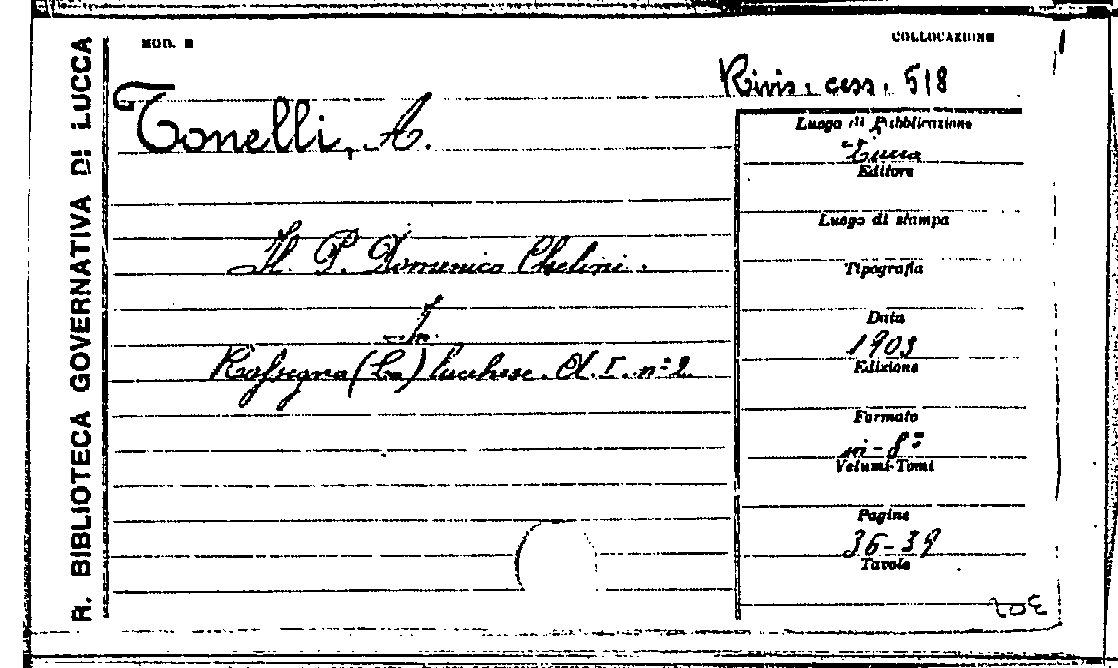 R. BIBLIOTECA GOVERNATIVA DI LUCCA
MOD. B
COLLOCAZIONE
Rivis. cess. 518
Tonelli, A.
Il P. Domenico Chelini.
In
Rassegna (La) lucchese. A. I. n° 2.
Luogo di Pubblicazione
Lucca
Editore
Luogo di stampa
Tipografia
Data
1903
Edizione
Formato
in-8°
Volumi-Tomi
Pagine
36-39
Tavole